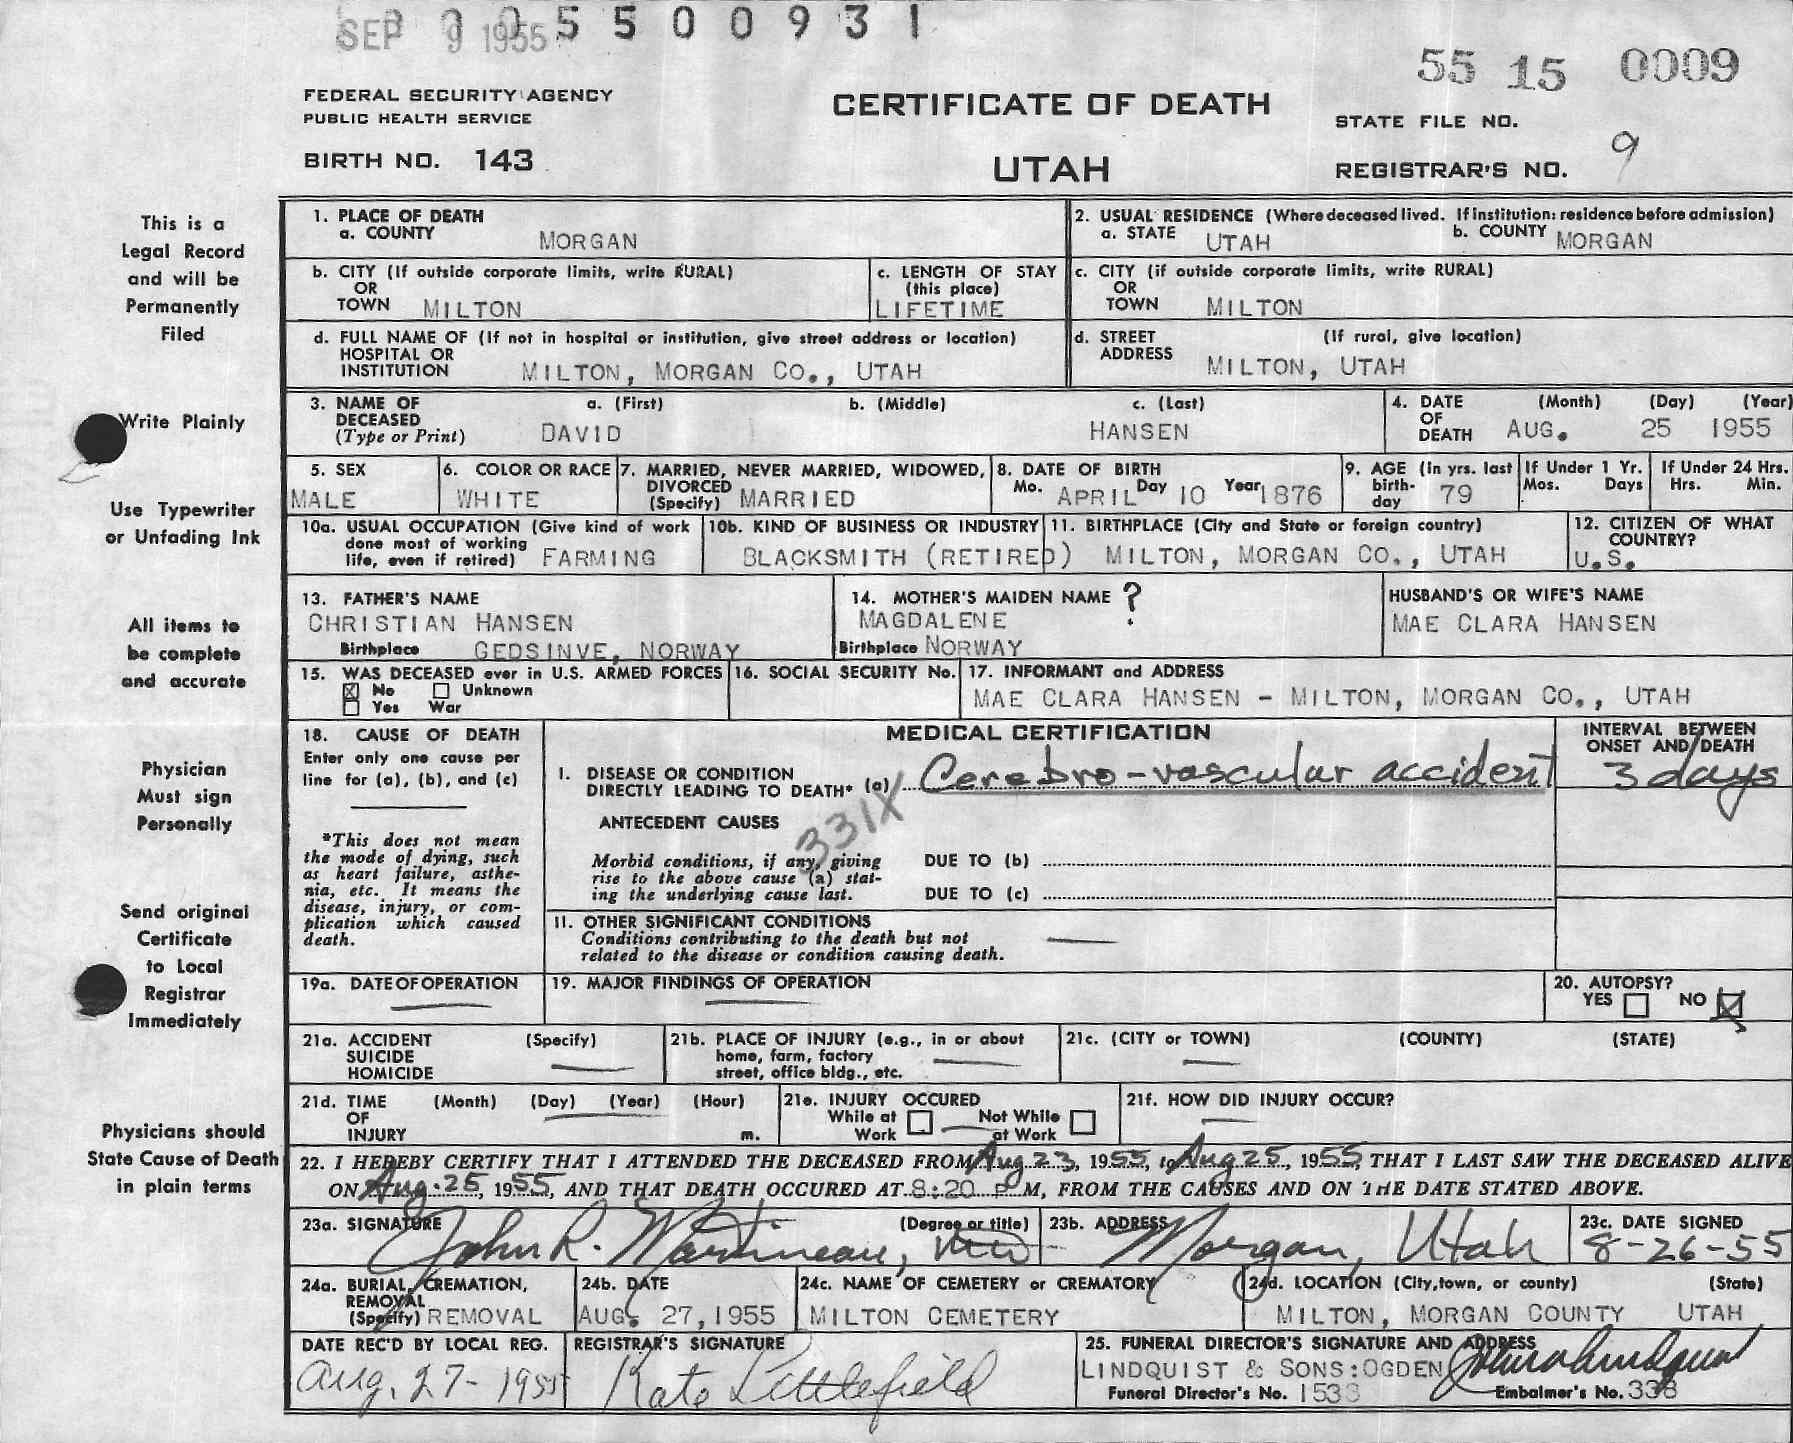 SEP 9 1955
5500931
55 15 0009
FEDERAL SECURITY AGENCY
PUBLIC HEALTH SERVICE
BIRTH NO. 143
CERTIFICATE OF DEATH
UTAH
STATE FILE NO.
REGISTRAR'S NO. 9
This is a
Legal Record
and will be
Permanently
Filed
Write Plainly
Use Typewriter
or Unfading Ink
All items to
be complete
and accurate
Physician
Must sign
Personally
Send original
Certificate
to Local
Registrar
Immediately
Physicians should
State Cause of Death
in plain terms
1. PLACE OF DEATH
a. COUNTY MORGAN
2. USUAL RESIDENCE (Where deceased lived. If institution: residence before admission)
a. STATE UTAH b. COUNTY MORGAN
b. CITY (If outside corporate limits, write RURAL)
OR
TOWN MILTON
c. LENGTH OF STAY
(this place)
LIFETIME
c. CITY (if outside corporate limits, write RURAL)
OR
TOWN MILTON
d. FULL NAME OF (If not in hospital or institution, give street address or location)
HOSPITAL OR
INSTITUTION MILTON, MORGAN CO., UTAH
d. STREET (If rural, give location)
ADDRESS MILTON, UTAH
3. NAME OF a. (First) b. (Middle) c. (Last)
DECEASED
(Type or Print) DAVID HANSEN
4. DATE (Month) (Day) (Year)
OF
DEATH AUG. 25 1955
5. SEX
MALE
6. COLOR OR RACE
WHITE
7. MARRIED, NEVER MARRIED, WIDOWED,
DIVORCED
(Specify) MARRIED
8. DATE OF BIRTH
Mo. APRIL Day 10 Year 1876
9. AGE (In yrs. last
birth-
day 79
If Under 1 Yr.
Mos. Days
If Under 24 Hrs.
Hrs. Min.
10a. USUAL OCCUPATION (Give kind of work
done most of working
life, even if retired) FARMING
10b. KIND OF BUSINESS OR INDUSTRY
BLACKSMITH (RETIRED)
11. BIRTHPLACE (City and State or foreign country)
MILTON, MORGAN CO., UTAH
12. CITIZEN OF WHAT
COUNTRY?
U.S.
13. FATHER'S NAME
CHRISTIAN HANSEN
Birthplace GEDSINVE, NORWAY
14. MOTHER'S MAIDEN NAME ?
MAGDALENE
Birthplace NORWAY
HUSBAND'S OR WIFE'S NAME
MAE CLARA HANSEN
15. WAS DECEASED ever in U.S. ARMED FORCES
No Unknown
Yes War
16. SOCIAL SECURITY No.
17. INFORMANT and ADDRESS
MAE CLARA HANSEN - MILTON, MORGAN CO., UTAH
18. CAUSE OF DEATH
Enter only one cause per
line for (a), (b), and (c)
*This does not mean
the mode of dying, such
as heart failure, asthe-
nia, etc. It means the
disease, injury, or com-
plication which caused
death.
MEDICAL CERTIFICATION
INTERVAL BETWEEN
ONSET AND DEATH
I. DISEASE OR CONDITION
DIRECTLY LEADING TO DEATH* (a) Cerebro-vascular accident 3 days
331X
ANTECEDENT CAUSES
Morbid conditions, if any, giving
rise to the above cause (a) stat-
ing the underlying cause last.
DUE TO (b)
DUE TO (c)
II. OTHER SIGNIFICANT CONDITIONS
Conditions contributing to the death but not
related to the disease or condition causing death.
19a. DATE OF OPERATION
19. MAJOR FINDINGS OF OPERATION
20. AUTOPSY?
YES NO
21a. ACCIDENT (Specify)
SUICIDE
HOMICIDE
21b. PLACE OF INJURY (e.g., in or about
home, farm, factory
street, office bldg., etc.
21c. (CITY or TOWN) (COUNTY) (STATE)
21d. TIME (Month) (Day) (Year) (Hour)
OF
INJURY m.
21e. INJURY OCCURED
While at Not While
Work at Work
21f. HOW DID INJURY OCCUR?
22. I HEREBY CERTIFY THAT I ATTENDED THE DECEASED FROM Aug 23, 1955, to Aug 25, 1955, THAT I LAST SAW THE DECEASED ALIVE
ON Aug. 25, 1955, AND THAT DEATH OCCURED AT 8:20 P M, FROM THE CAUSES AND ON THE DATE STATED ABOVE.
23a. SIGNATURE (Degree or title)
John R. Martineau, MD
23b. ADDRESS
Morgan, Utah
23c. DATE SIGNED
8-26-55
24a. BURIAL, CREMATION,
REMOVAL
(Specify) REMOVAL
24b. DATE
AUG. 27, 1955
24c. NAME OF CEMETERY or CREMATORY
MILTON CEMETERY
24d. LOCATION (City, town, or county) (State)
MILTON, MORGAN COUNTY UTAH
DATE REC'D BY LOCAL REG.
Aug. 27-1955
REGISTRAR'S SIGNATURE
Kate Littlefield
25. FUNERAL DIRECTOR'S SIGNATURE AND ADDRESS
LINDQUIST & SONS: OGDEN
Funeral Director's No. 153 Embalmer's No. 338